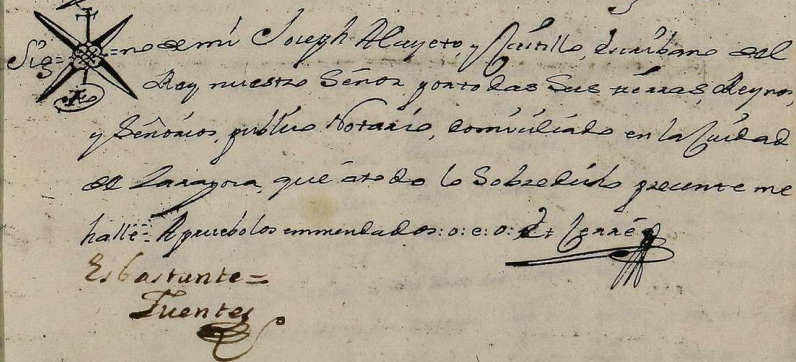 Sig=no de mi Joseph Alayeto, y Castillo, escribano del
Rey nuestro Señor por todas sus tierras, Reynos,
y Señorios, publico Notario, domiciliado en la Ciudad
de Zaragoza, que à todo lo sobredicho presente me
hallè. Apruebo los emmendados: o: e: o: Et Cerrè
Es bastante=
Fuentes